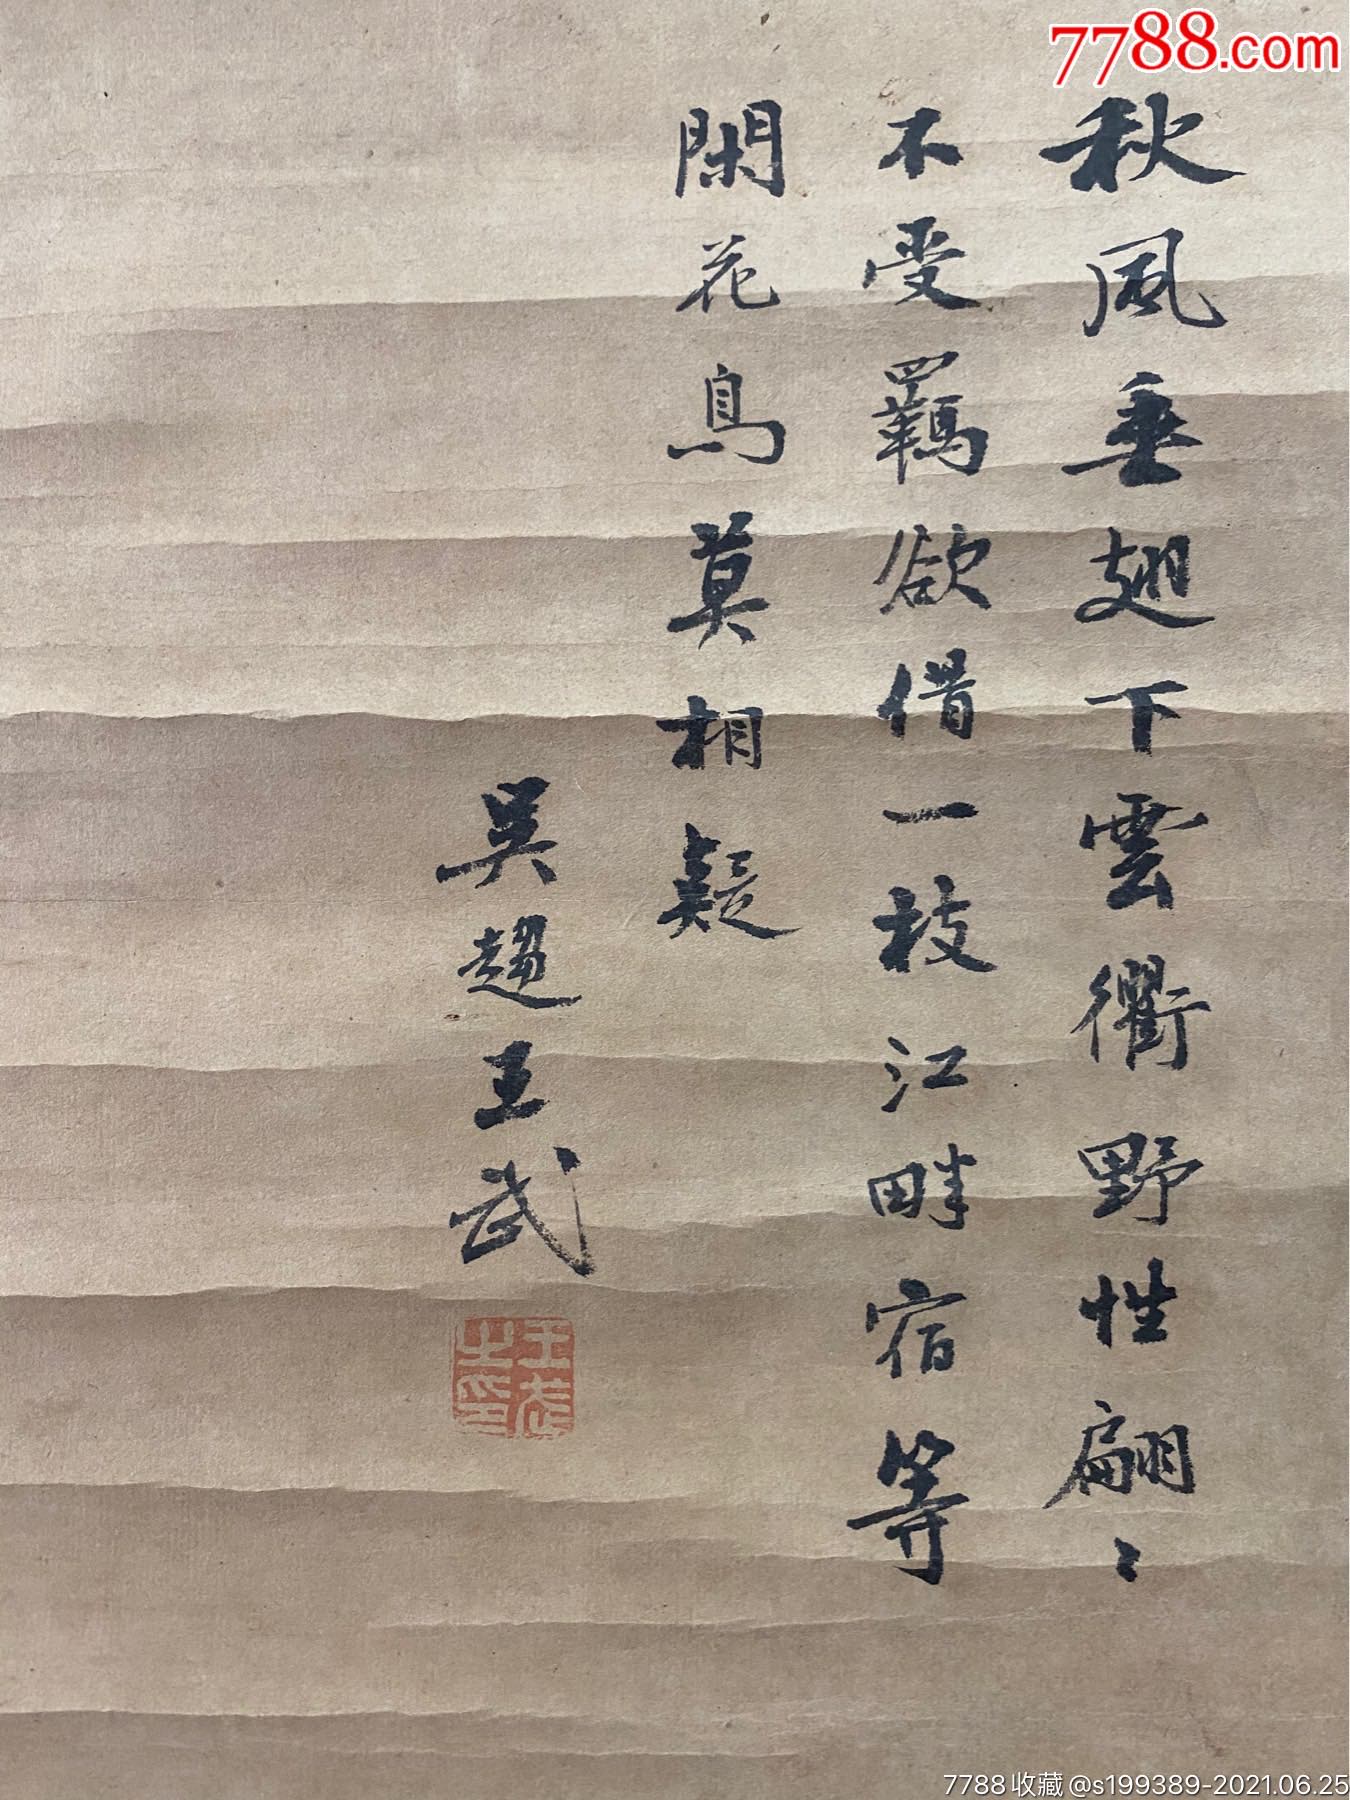 7788.com
秋風垂翅下雲衢野性翩〻
不受羈欲借一枝江畔宿等
閑花鳥莫相疑
吳趨王武
王武之印
7788收藏@s199389-2021.06.25